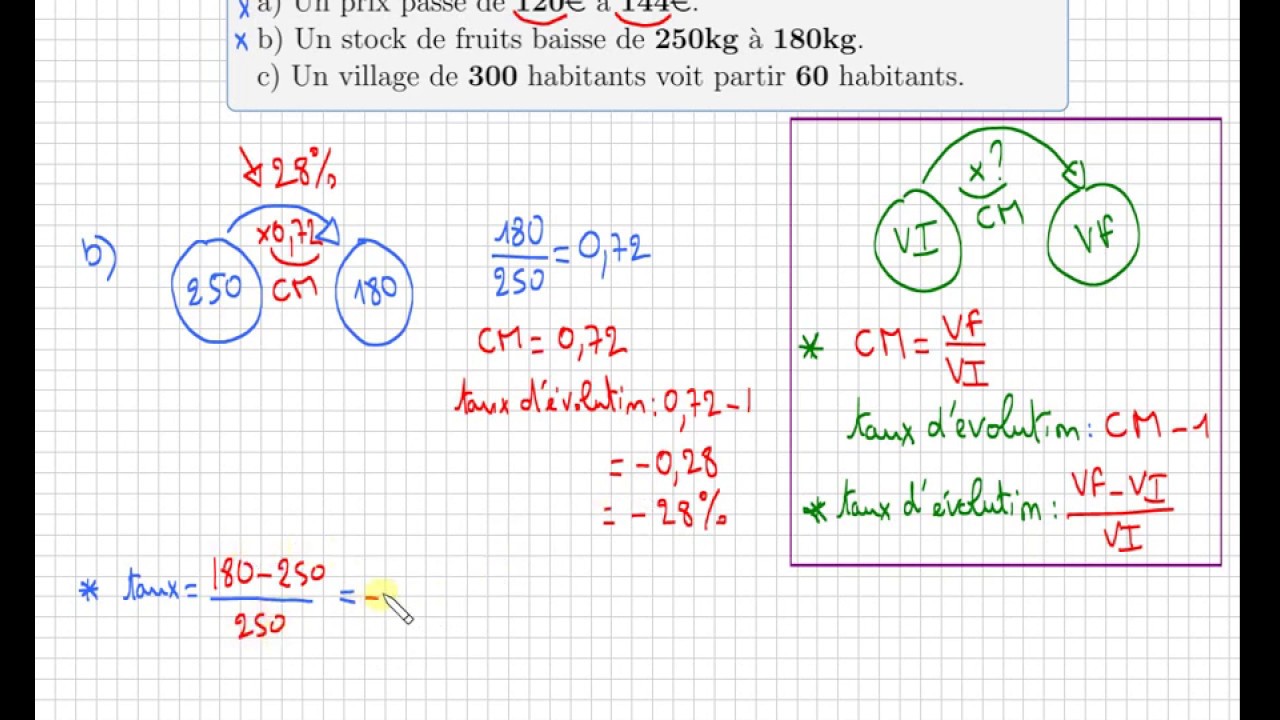 x a) Un prix passe de 120€ à 144€.
x b) Un stock de fruits baisse de 250kg à 180kg.
c) Un village de 300 habitants voit partir 60 habitants.
↘ 28%
b) 250 ×0,72 CM 180
180/250 = 0,72
CM = 0,72
taux d'évolution : 0,72 - 1
= -0,28
= -28%
* taux = (180 - 250)/250 = -
×?
VI CM Vf
* CM = Vf/VI
taux d'évolution : CM - 1
* taux d'évolution : (Vf - VI)/VI